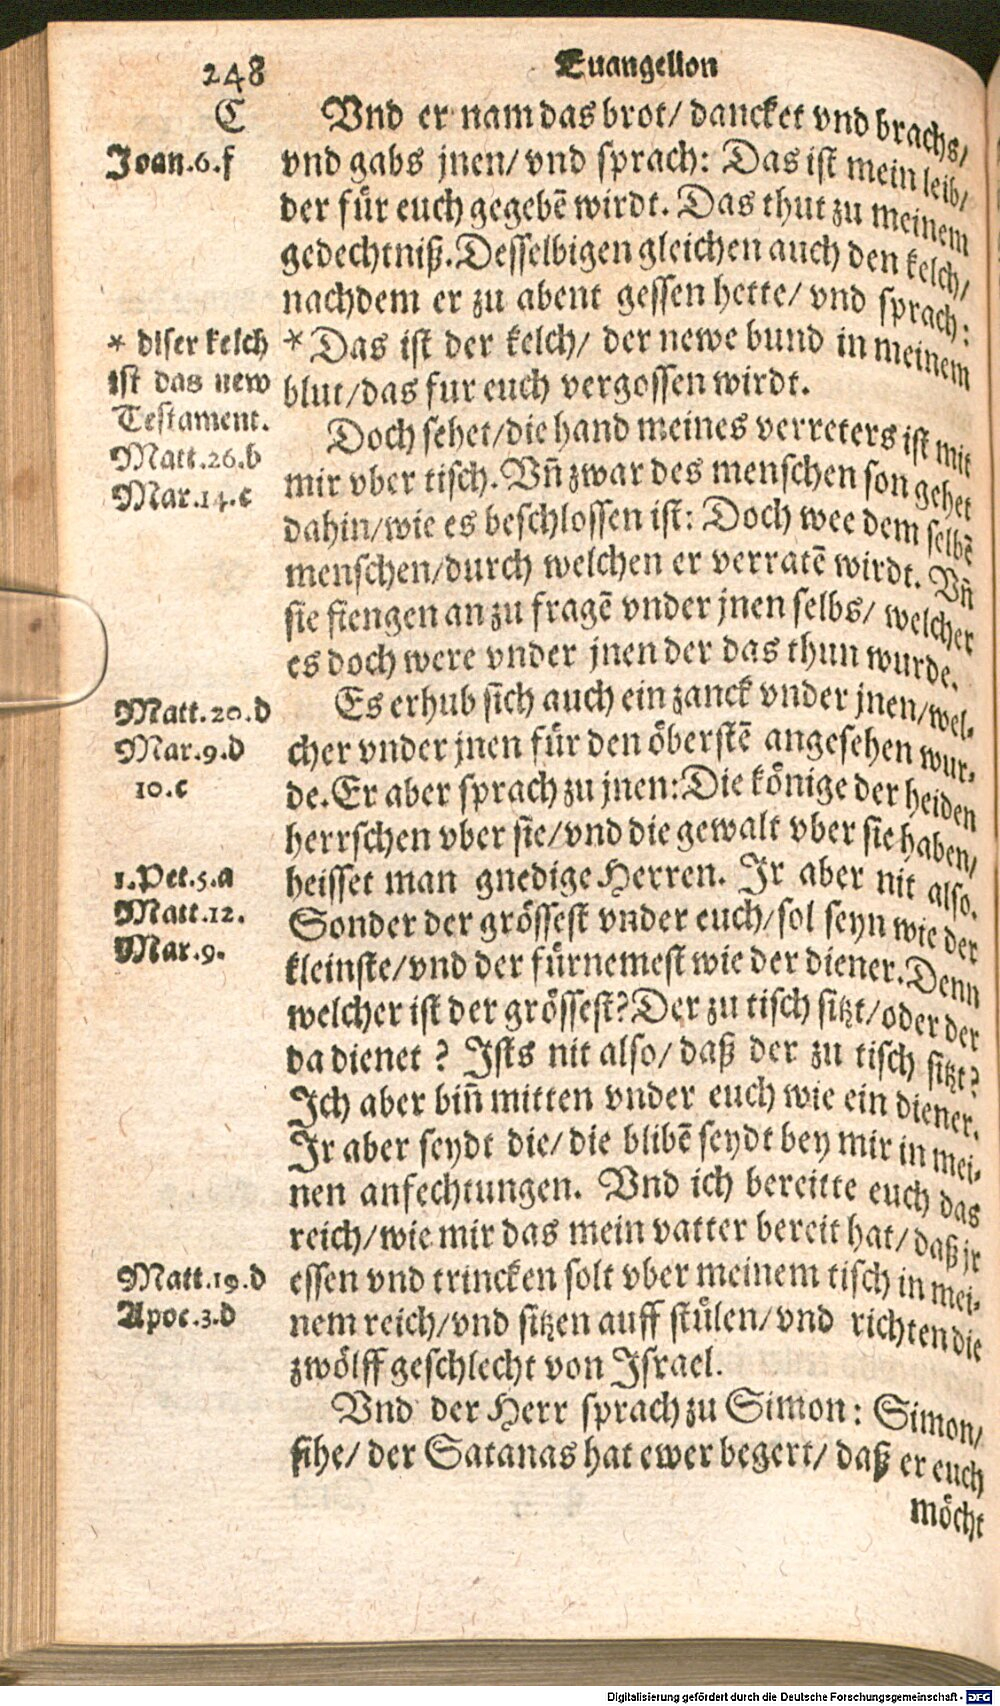 248
Euangelion
C
Vnd er nam das brot/ dancket vnd brachs/
Joan.6.f
vnd gabs jnen/ vnd sprach: Das ist mein leib/
der für euch gegebē wirdt. Das thut zu meinem
gedechtniß. Desselbigen gleichen auch den kelch/
nachdem er zu abent gessen hette/ vnd sprach:
* diser kelch
ist das new
Testament.
Matt.26.b
Mar.14.c
* Das ist der kelch/ der newe bund in meinem
blut/das fur euch vergossen wirdt.
Doch sehet/die hand meines verreters ist mit
mir vber tisch. Vñ zwar des menschen son gehet
dahin/wie es beschlossen ist: Doch wee dem selbē
menschen/durch welchen er verratē wirdt. Vñ
sie fiengen an zu fragē vnder jnen selbs/ welcher
es doch were vnder jnen der das thun wurde.
Matt.20.d
Mar.9.d
10.c
Es erhub sich auch ein zanck vnder jnen/wel-
cher vnder jnen für den öberstē angesehen wur-
de. Er aber sprach zu jnen: Die könige der heiden
herrschen vber sie/vnd die gewalt vber sie haben/
1.Pet.5.a
Matt.12.
Mar.9.
heisset man gnedige Herren. Ir aber nit also.
Sonder der grössest vnder euch/sol seyn wie der
kleinste/vnd der fürnemest wie der diener. Denn
welcher ist der grössest? Der zu tisch sitzt/oder der
da dienet ? Ists nit also/ daß der zu tisch sitzt?
Ich aber biñ mitten vnder euch wie ein diener.
Ir aber seydt die/ die blibē seydt bey mir in mei-
nen anfechtungen. Vnd ich bereitte euch das
reich/wie mir das mein vatter bereit hat/ daß jr
Matt.19.d
Apoc.3.d
essen vnd trincken solt vber meinem tisch in mei-
nem reich/vnd sitzen auff stülen/ vnd richten die
zwölff geschlecht von Israel.
Vnd der Herr sprach zu Simon: Simon/
sihe/ der Satanas hat ewer begert/ daß er euch
möcht
Digitalisierung gefördert durch die Deutsche Forschungsgemeinschaft - DFG